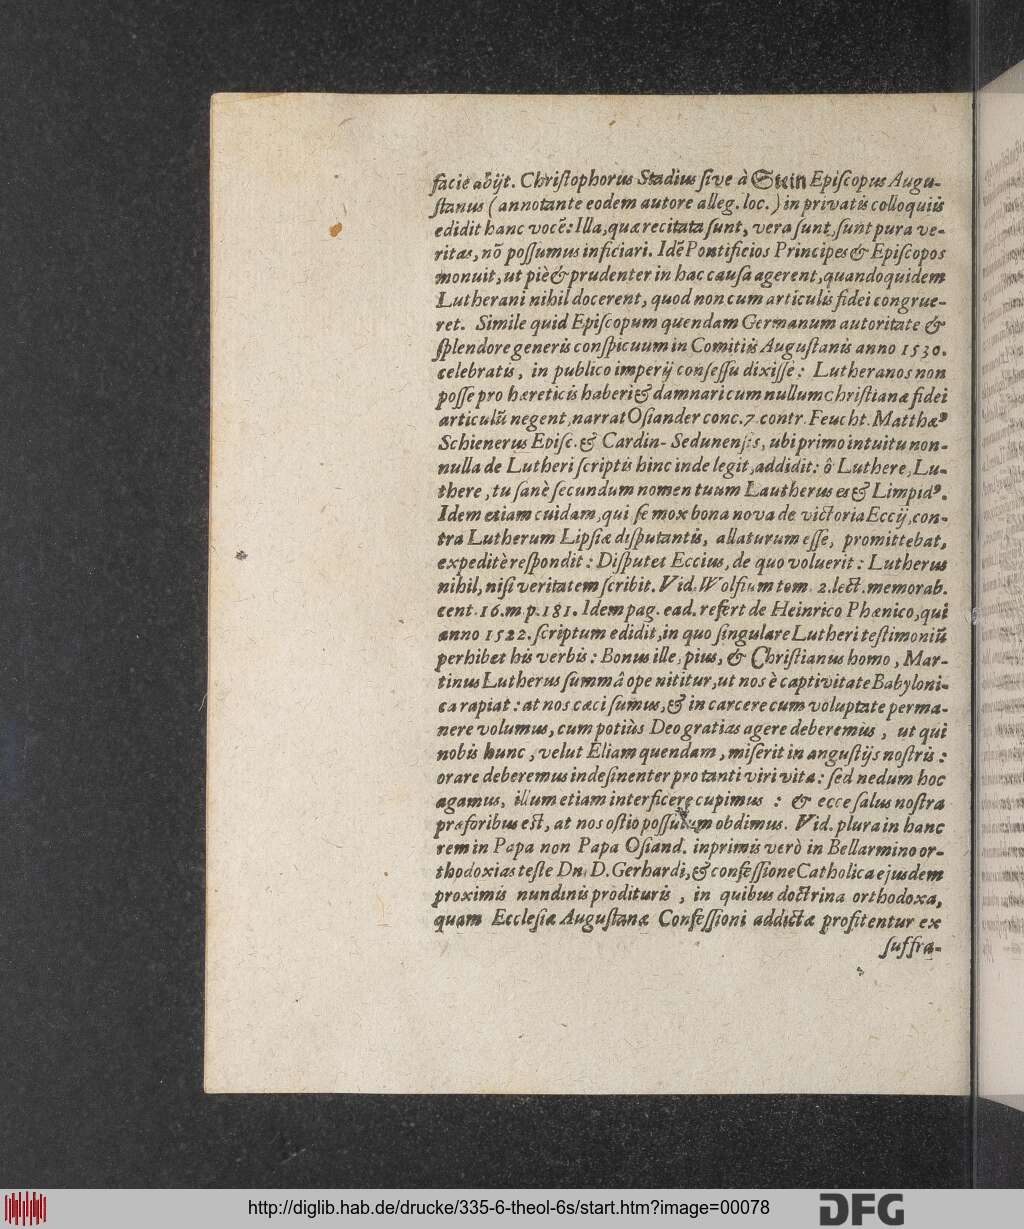 facie abijt. Chriſtophorus Stadius ſive à Stein Epiſcopus Augu-
ſtanus (annotante eodem autore alleg. loc.) in privatis colloquiis
edidit hanc vocẽ: Illa, quæ recitata ſunt, vera ſunt, ſunt pura ve-
ritas, nõ poſſumus inficiari. Idẽ Pontificios Principes & Epiſcopos
monuit, ut piè & prudenter in hac cauſa agerent, quandoquidem
Lutherani nihil docerent, quod non cum articulis fidei congrue-
ret. Simile quid Epiſcopum quendam Germanum autoritate &
ſplendore generis conſpicuum in Comitiis Auguſtanis anno 1530.
celebratis, in publico imperij conſeſſu dixiſſe: Lutheranos non
poſſe pro hæreticis haberi & damnari cum nullum chriſtianæ fidei
articulũ negent, narrat Oſiander conc. 7. contr. Feucht. Matthæꝰ
Schienerus Epiſc. & Cardin- Sedunenſis, ubi primo intuitu non-
nulla de Lutheri ſcriptis hinc inde legit, addidit: ô Luthere, Lu-
there, tu ſanè ſecundum nomen tuum Lautherus es & Limpidꝰ.
Idem etiam cuidam, qui ſe mox bona nova de victoria Eccij, con-
tra Lutherum Lipſiæ diſputantis, allaturum eſſe, promittebat,
expeditè reſpondit: Diſputet Eccius, de quo voluerit: Lutherus
nihil, niſi veritatem ſcribit. Vid. Wolfium tom. 2. lect. memorab.
cent. 16. m. p. 181. Idem pag. ead. refert de Heinrico Phænico, qui
anno 1522. ſcriptum edidit, in quo ſingulare Lutheri teſtimoniũ
perhibet his verbis: Bonus ille, pius, & Chriſtianus homo, Mar-
tinus Lutherus ſummâ ope nititur, ut nos è captivitate Babyloni-
ca rapiat: at nos cæci ſumus, & in carcere cum voluptate perma-
nere volumus, cum potiùs Deo gratias agere deberemus, ut qui
nobis hunc, velut Eliam quendam, miſerit in anguſtijs noſtris:
orare deberemus indeſinenter pro tanti viri vita: ſed nedum hoc
agamus, illum etiam interficere cupimus: & ecce ſalus noſtra
præ foribus eſt, at nos oſtio poſſulum obdimus. Vid. plura in hanc
rem in Papa non Papa Oſiand. inprimis verò in Bellarmino or-
thodoxias teſte Dn. D. Gerhardi, & confeſſione Catholica ejusdem
proximis nundinis prodituris, in quibus doctrina orthodoxa,
quam Eccleſiæ Auguſtanæ Confeſſioni addictæ profitentur ex
ſuffra-
http://diglib.hab.de/drucke/335-6-theol-6s/start.htm?image=00078
DFG